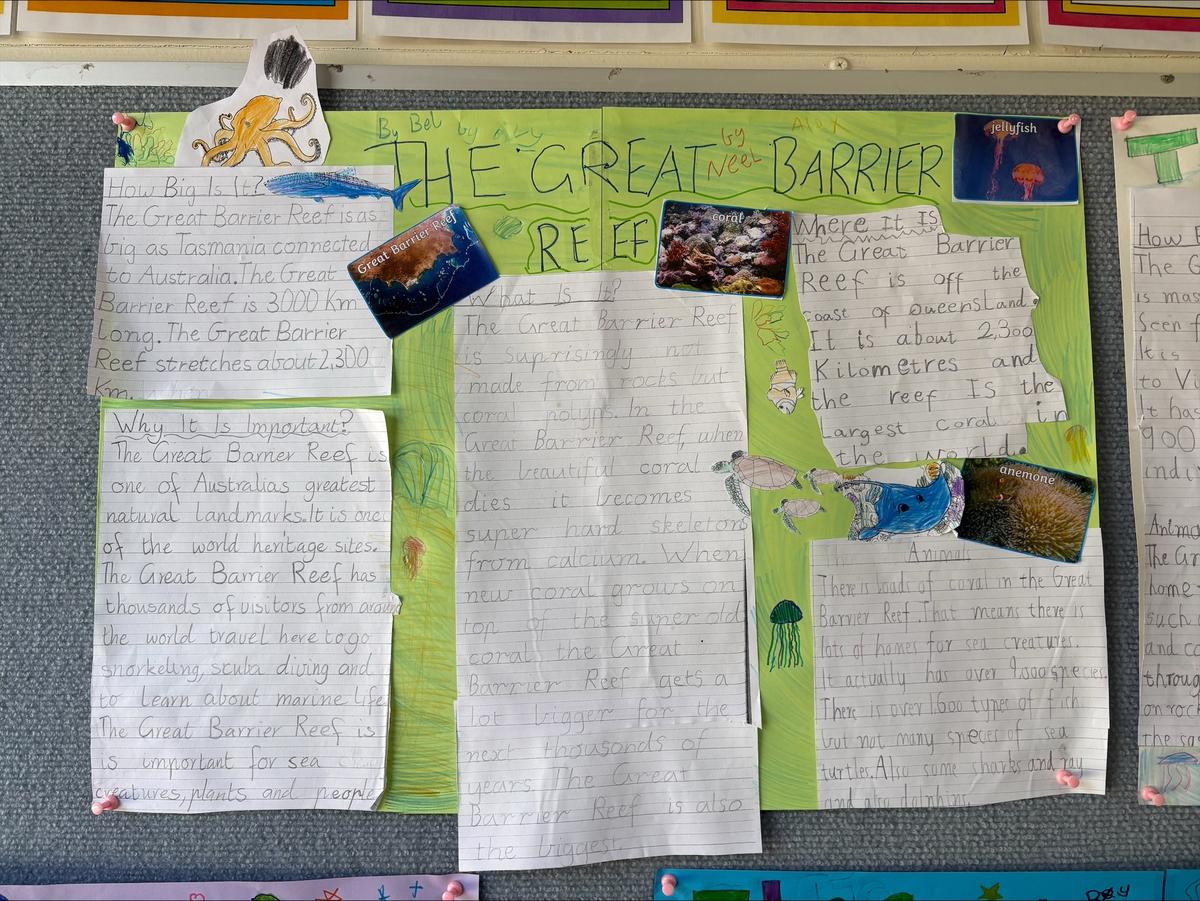 By Bel by
by Neel
Alex
THE GREAT BARRIER
REEF
jellyfish
How Big Is It?
The Great Barrier Reef is as
big as Tasmania connected
to Australia. The Great
Barrier Reef is 3000 Km
long. The Great Barrier
Reef stretches about 2,300
Km.
Great Barrier Reef
coral
Why It Is Important?
The Great Barrier Reef is
one of Australias greatest
natural landmarks. It is one
of the world heritage sites.
The Great Barrier Reef has
thousands of visitors from around
the world travel here to go
snorkeling, scuba diving and
to learn about marine life
The Great Barrier Reef is
is important for sea
creatures, plants and people
What Is It?
The Great Barrier Reef
is suprisingly not
made from rocks but
coral polyps. In the
Great Barrier Reef, when
the beautiful coral
dies it becomes
super hard skeletons
from calcium. When
new coral grows on
top of the super old
coral the Great
Barrier Reef gets a
lot bigger for the
next thousands of
years. The Great
Barrier Reef is also
the biggest
Where It IS
The Great Barrier
Reef is off the
coast of QueensLand.
It is about 2,300
Kilometres and
the reef Is the
Largest coral in
the world.
anemone
Animals
There is loads of coral in the Great
Barrier Reef. That means there is
lots of homes for sea creatures.
It actually has over 9,000 species.
There is over 1600 types of fish
but not many species of sea
turtles. Also some sharks and ray
and also dolphins.
How
The G
is mas
Seen
It is
to Vi
It ha
900
indi
Anima
The Gr
home
such
and co
throug
on rock
the sa